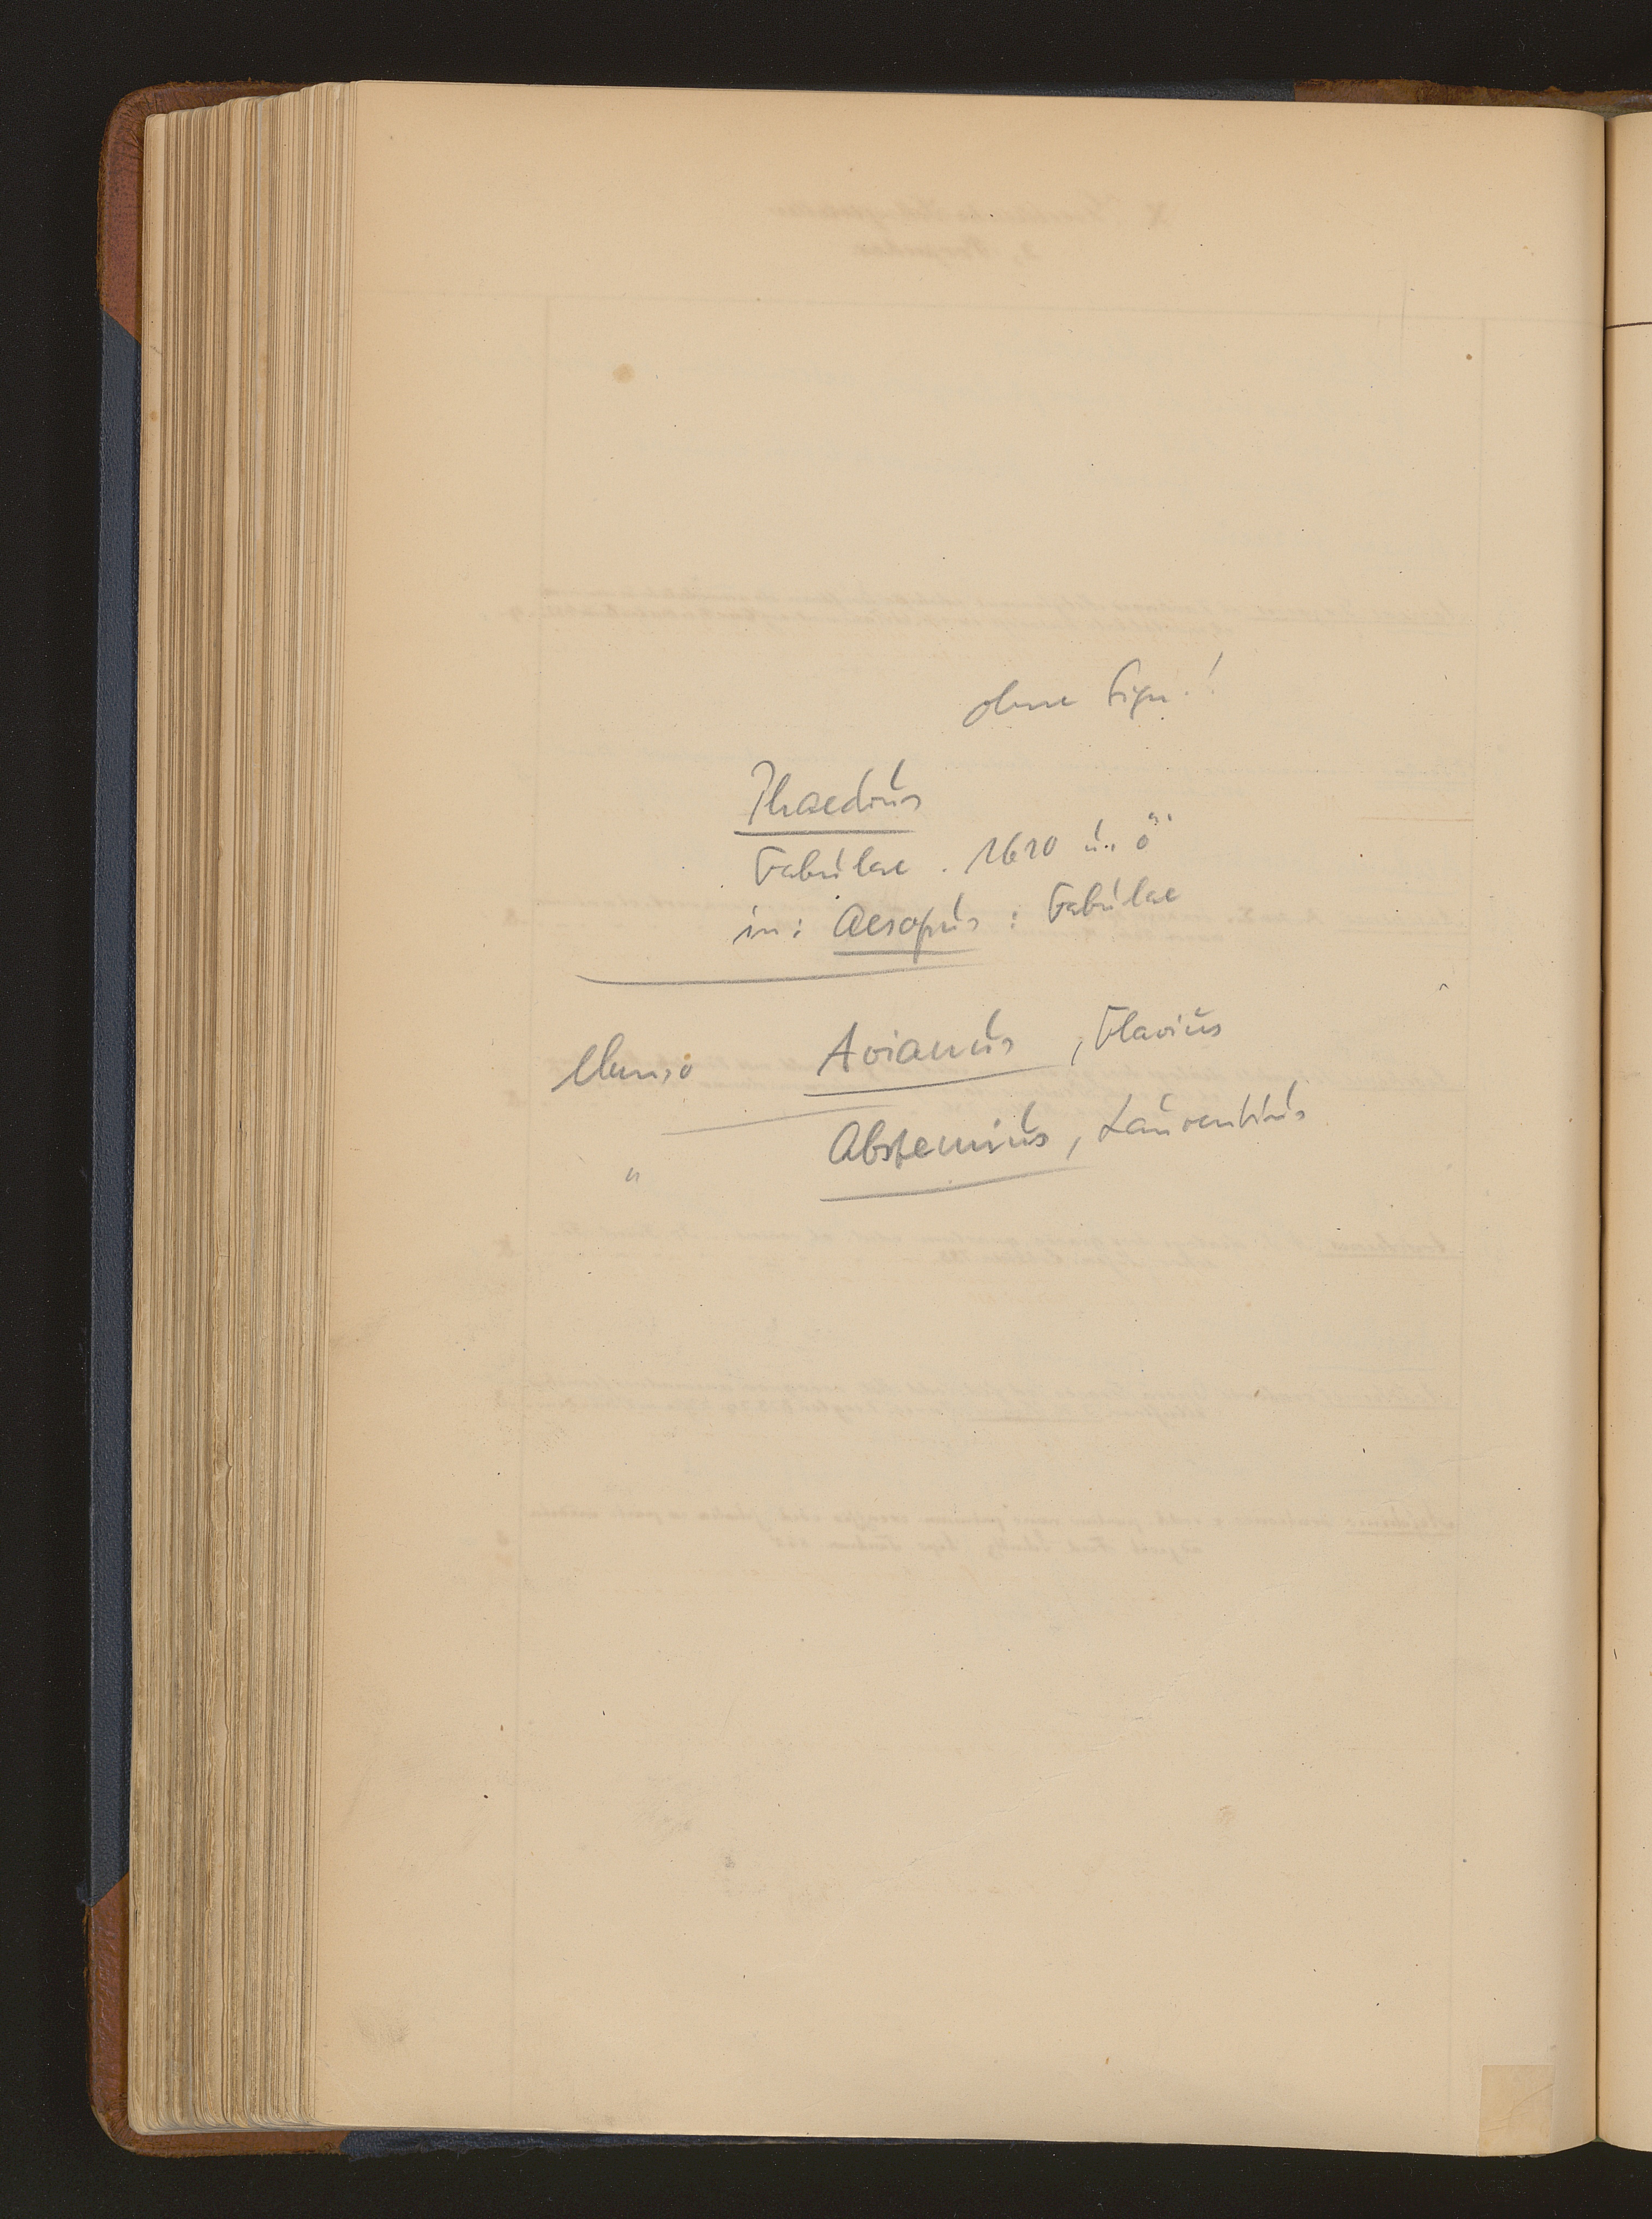 ohne Sign.!
Phaedrus
Fabulae. 1610 u. ö
in: Aesopus: Fabulae
Ebenso Avianus, Flavius
" Abstemius, Laurentius